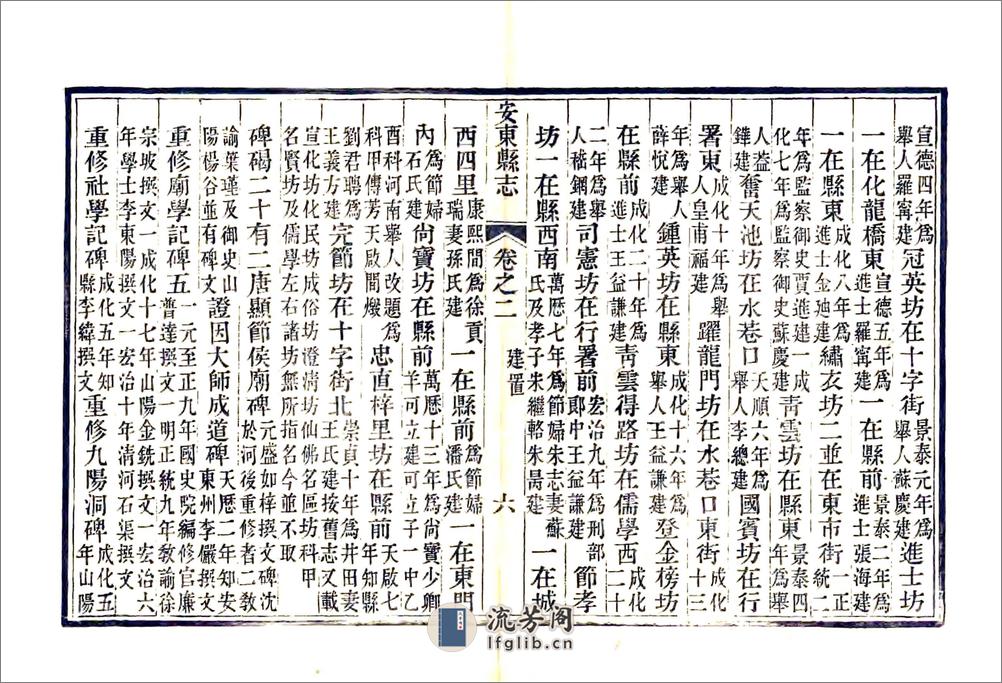 宣德四年為舉人羅寧建冠英坊在十字街景泰元年為舉人蘇慶建進士坊
一在化龍橋東宣德五年為進士羅寧建一在縣前景泰二年為進士張海建
一在縣東成化八年為進士金廸建繡衣坊二並在東市街一正統二
年為監察御史賈進建一成化七年為監察御史蘇慶建青雲坊在縣東景泰四年為舉
人盍鏵建奮天池坊在水巷口天順六年為舉人李總建國賓坊在行
署東成化十年為舉人皇甫福建躍龍門坊在水巷口東街成化十三
年為舉人薛悅建鍾英坊在縣東成化十六年為舉人王益謙建登金榜坊
在縣前成化二十年為進士王益謙建青雲得路坊在儒學西成化二十
二年為舉人嵇鋼建司憲坊在行署前宏治九年為刑部郎中王益謙建節孝
坊一在縣西南萬歷七年為節婦朱志妻蘇氏及孝子朱繼輅朱昺建一在城
安東縣志 卷之二 建置 六
西四里康熙間為徐貢瑞妻孫氏建一在縣前為節婦潘氏建一在東門
內為節婦石氏建尚寶坊在縣前萬歷十三年為尚寶少卿羊可立建可立子一中乙
酉科河南舉人改題為科甲傳芳天啟間燬忠直梓里坊在縣前天啟七年知縣
劉君聘為王義方建完節坊在十字街北崇貞十年為井田妻王氏建按舊志又載
宣化坊化民坊成俗坊澄清坊仙佛名區坊科甲名賢坊及儒學左右諸坊無所指名今並不取
碑碣二十有二唐顯節侯廟碑元盛如梓撰文碑沈於河後重修者二教
諭葉瑾及御史山陽楊谷並有碑文證因大師成道碑天歷二年知安東州李儼撰文
重修廟學記碑五一元至正九年國史院編修官廉普達撰文一明正統九年教諭徐
宗坡撰文一成化十七年山陽金銑撰文一宏治六年學士李東陽撰文一宏治十年清河石渠撰文
重修社學記碑成化五年知縣李緯撰文重修九陽洞碑成化五年山陽
流芳阁
lfglib.cn